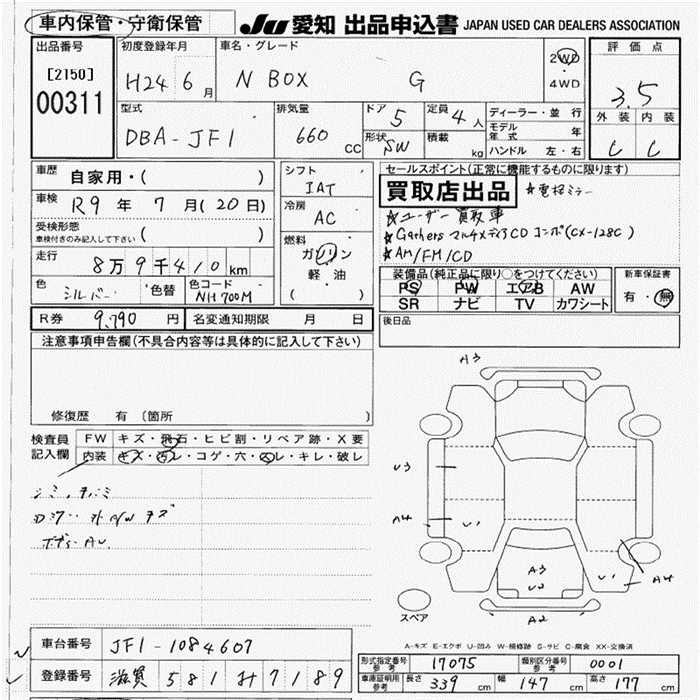 車内保管・守衛保管
JU 愛知 出品申込書 JAPAN USED CAR DEALERS ASSOCIATION
出品番号 [2150] 00311
初度登録年月 H24 6月
車名・グレード N BOX G
2WD ・ 4WD
評価点 3.5
外装 内装
型式 DBA-JF1
排気量 660 CC
ドア 5
定員 4人
形状 SW
積載 kg
ディーラー・並行
モデル年式 年
ハンドル 左・右
車歴 自家用・( )
車検 R9年 7月(20日)
受検形態 車検付きのみ記入して下さい ( )
走行 8万9千410km
色 シルバー 色替
色コード NH700M
シフト IAT
冷房 AC
燃料 ガソリン 軽油 ( )
セールスポイント(正常に機能するものに限ります)
買取店出品 ★電格ミラー
★ユーザー買取車
★Gathers マルチメディアCDコンポ(CX-128C)
★AM/FM/CD
装備品(純正品に限り○をつけてください)
PS PW エアB AW
SR ナビ TV カワシート
新車保証書 有・無
R券 9,790円
名変通知期限 月 日
後日品
注意事項申告欄(不具合内容等は具体的に記入して下さい)
修復歴 有 (箇所 )
検査員記入欄
FW キズ・飛石・ヒビ割・リペア跡・X要
内装 キズ・汚レ・コゲ・穴・スレ・キレ・破レ
A3
U3
A4
U1
A3
U2
U1
A4
A2
スペア
A-キズ E-エクボ U-凹み W-補修跡 S-サビ C-腐食 XX-交換済
車台番号 JF1-1084607
登録番号 滋賀 581 み 7189
形式指定番号 参考 17075
類別区分番号 参考 0001
車庫証明用 参考 長さ 339cm 幅 147cm 高さ 177cm